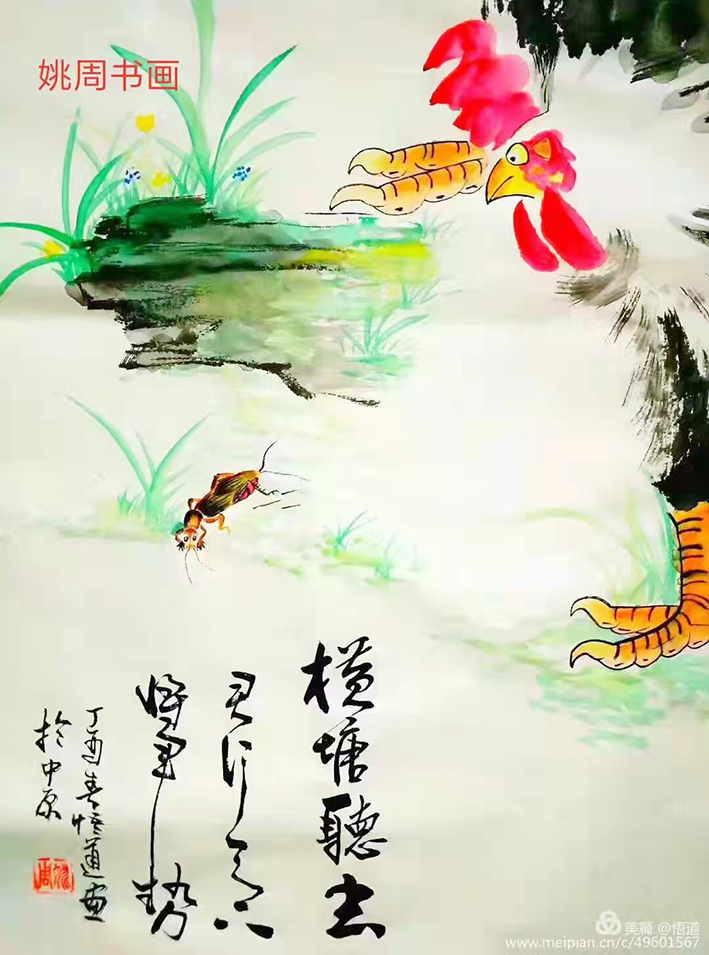 姚周书画
横塘聽
君行
將軍勢
丁酉春悟道画
於中原
美篇 @悟道
www.meipian.cn/c/49601567